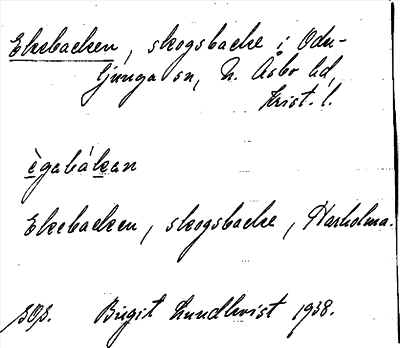 Ekebacken, skogsbacke i Odu-
ljunga sn, N. Åsbo hd,
Krist. l.
ègabákan
Ekebacken, skogsbacke, Harholma.
Birgit Lundkvist 1938.